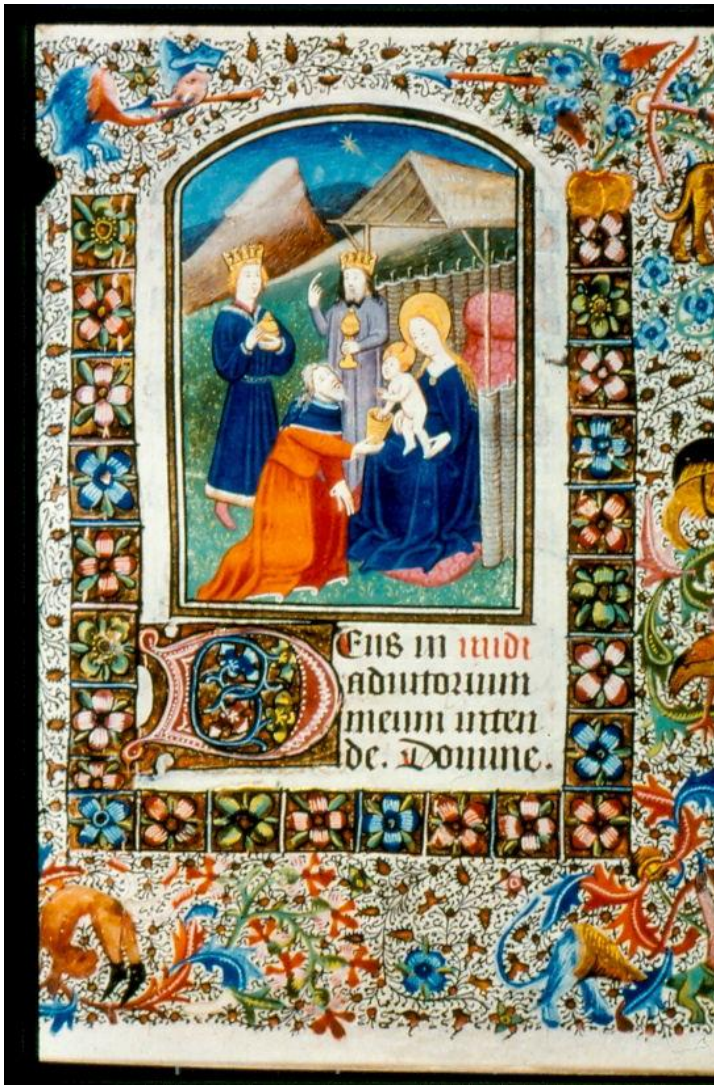 Deus in midi
adiutorium
meum inten
de. Domine.